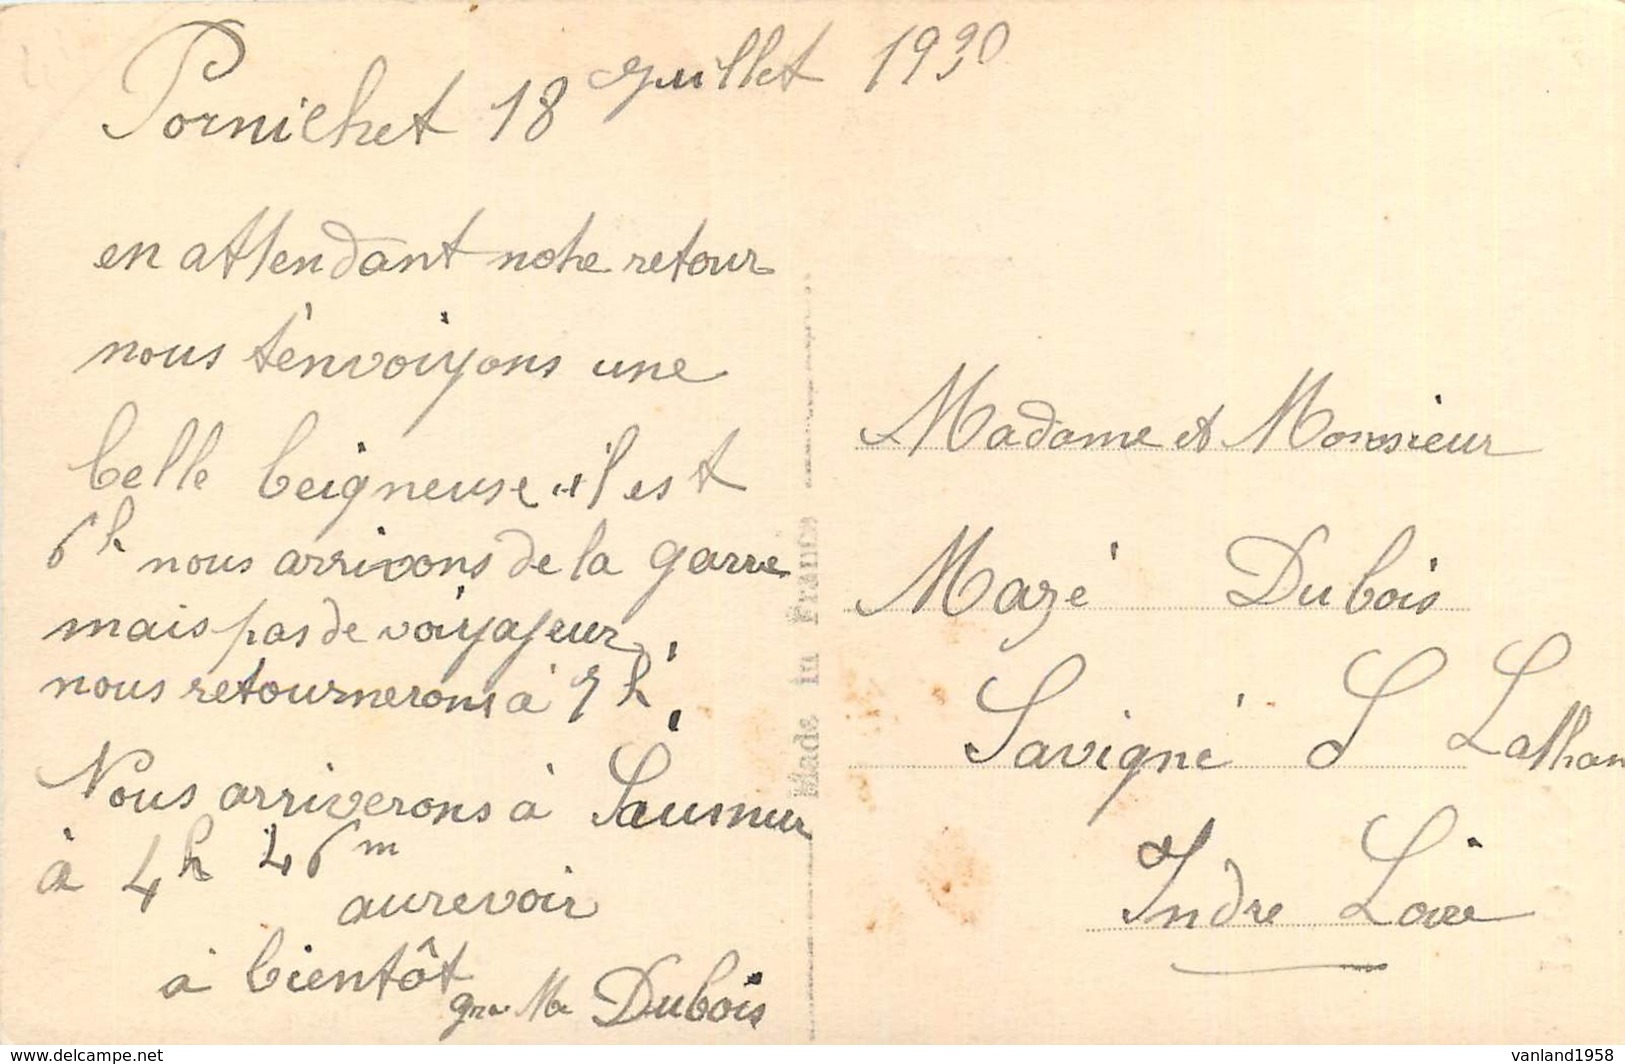 Pornichet 18 Juillet 1930
en attendant notre retour
nous t'envoiyons une
belle beigneuse, il est
6h nous arrivons de la garre
mais pas de voiyajeur,
nous retournerons à 7h,
Nous arriverons à Saumur
à 4h 46m
aurevoir
à bientôt
Dubois
Made in France
Madame et Monsieur
Mazé Dubois
Savigné S Lathan
Indre Loire
vanland1958
delcampe.net